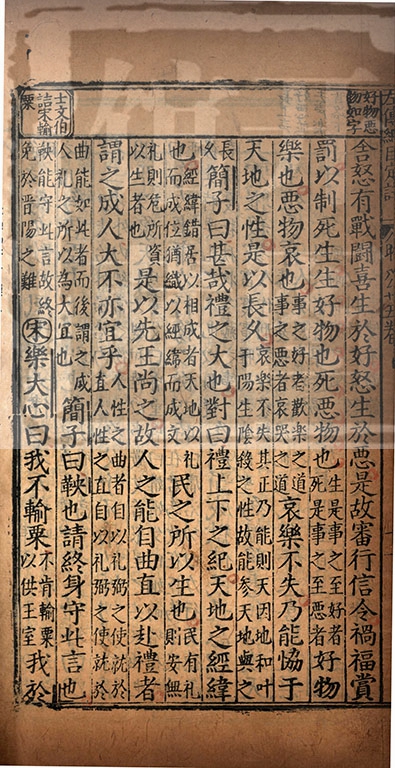 好物惡
物如字
舍怒有戰鬬喜生於好怒生於惡是故審行信令禍福賞
罰以制死生生好物也死惡物也生是事之至好者死是事之至惡者好物
樂也惡物哀也事之好者歡樂之道事之惡者哀哭之道哀樂不失乃能恊于
天地之性是以長久哀樂不失其正乃能則天因地和叶于陽生陰殺之性故能參天地與之
長久簡子曰甚哉禮之大也對曰禮上下之紀天地之經緯
也經緯錯居以相成者天地以礼而成位猶織以經緯而成文民之所以生也民有礼則安無
礼則危所資以生者也是以先王尚之故人之能自曲直以赴禮者
謂之成人大不亦宜乎人性之曲者自以礼弼之使就於直人性之直自以礼弼之使就於
曲能如此者而後謂之成人礼之所以為大宜也簡子曰鞅也請終身守此言也
士文伯
詰宋輸
粟
鞅能守此言故終免於晋陽之難宋樂大心曰我不輸粟不肯輸粟以供王室我於